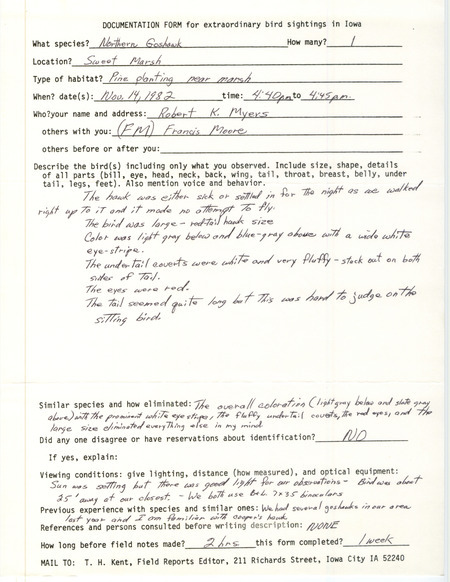 DOCUMENTATION FORM for extraordinary bird sightings in Iowa
What species? Northern Goshawk How many? 1
Location? Sweet Marsh
Type of habitat? Pine planting near marsh
When? date(s): Nov. 14, 1982 time: 4:40pm to 4:45pm.
Who?your name and address: Robert K. Myers
others with you: (FM) Francis Moore
others before or after you:
Describe the bird(s) including only what you observed. Include size, shape, details
of all parts (bill, eye, head, neck, back, wing, tail, throat, breast, belly, under
tail, legs, feet). Also mention voice and behavior.
The hawk was either sick or settled in for the night as we walked
right up to it and it made no attempt to fly.
The bird was large - redtail hawk size
Color was light gray below and blue-gray above with a wide white
eye-stripe.
The undertail coverts were white and very fluffy - stuck out on both
sides of tail.
The eyes were red.
The tail seemed quite long but this was hard to judge on the
sitting bird.
Similar species and how eliminated: The overall coloration (light gray below and slate gray
above) with the prominent white eyestripe, the fluffy undertail coverts, the red eyes, and the
large size eliminated everything else in my mind.
Did any one disagree or have reservations about identification? NO
If yes, explain:
Viewing conditions: give lighting, distance (how measured), and optical equipment:
Sun was setting but there was good light for our observations - Bird was about
25' away at our closest. - We both use B&L 7x35 binoculars
Previous experience with species and similar ones: We had several goshawks in our area
last year and I am familiar with cooper's hawk
References and persons consulted before writing description: NONE
How long before field notes made? 2 hrs this form completed? 1 week
MAIL TO: T. H. Kent, Field Reports Editor, 211 Richards Street, Iowa City IA 52240